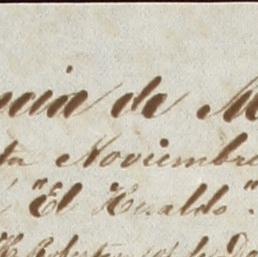 ncia de M
ta Noviembre
"El Heraldo".